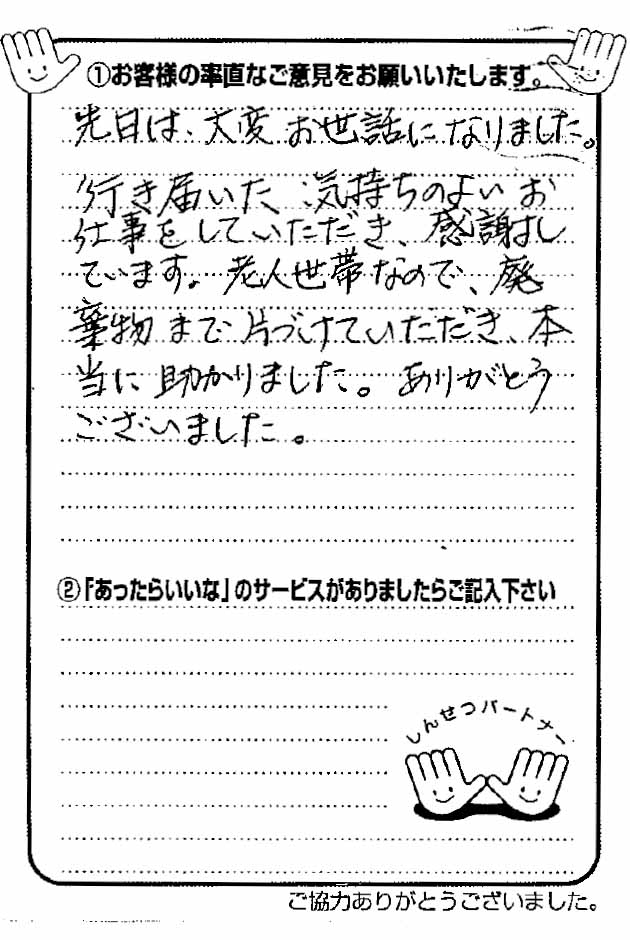 ①お客様の率直なご意見をお願いいたします。
先日は、大変お世話になりました。
行き届いた、気持ちのよいお
仕事をしていただき、感謝し
ています。老人世帯なので、廃
棄物まで片づけていただき、本
当に助かりました。ありがとう
ございました。
②「あったらいいな」のサービスがありましたらご記入下さい
しんせつパートナー
ご協力ありがとうございました。